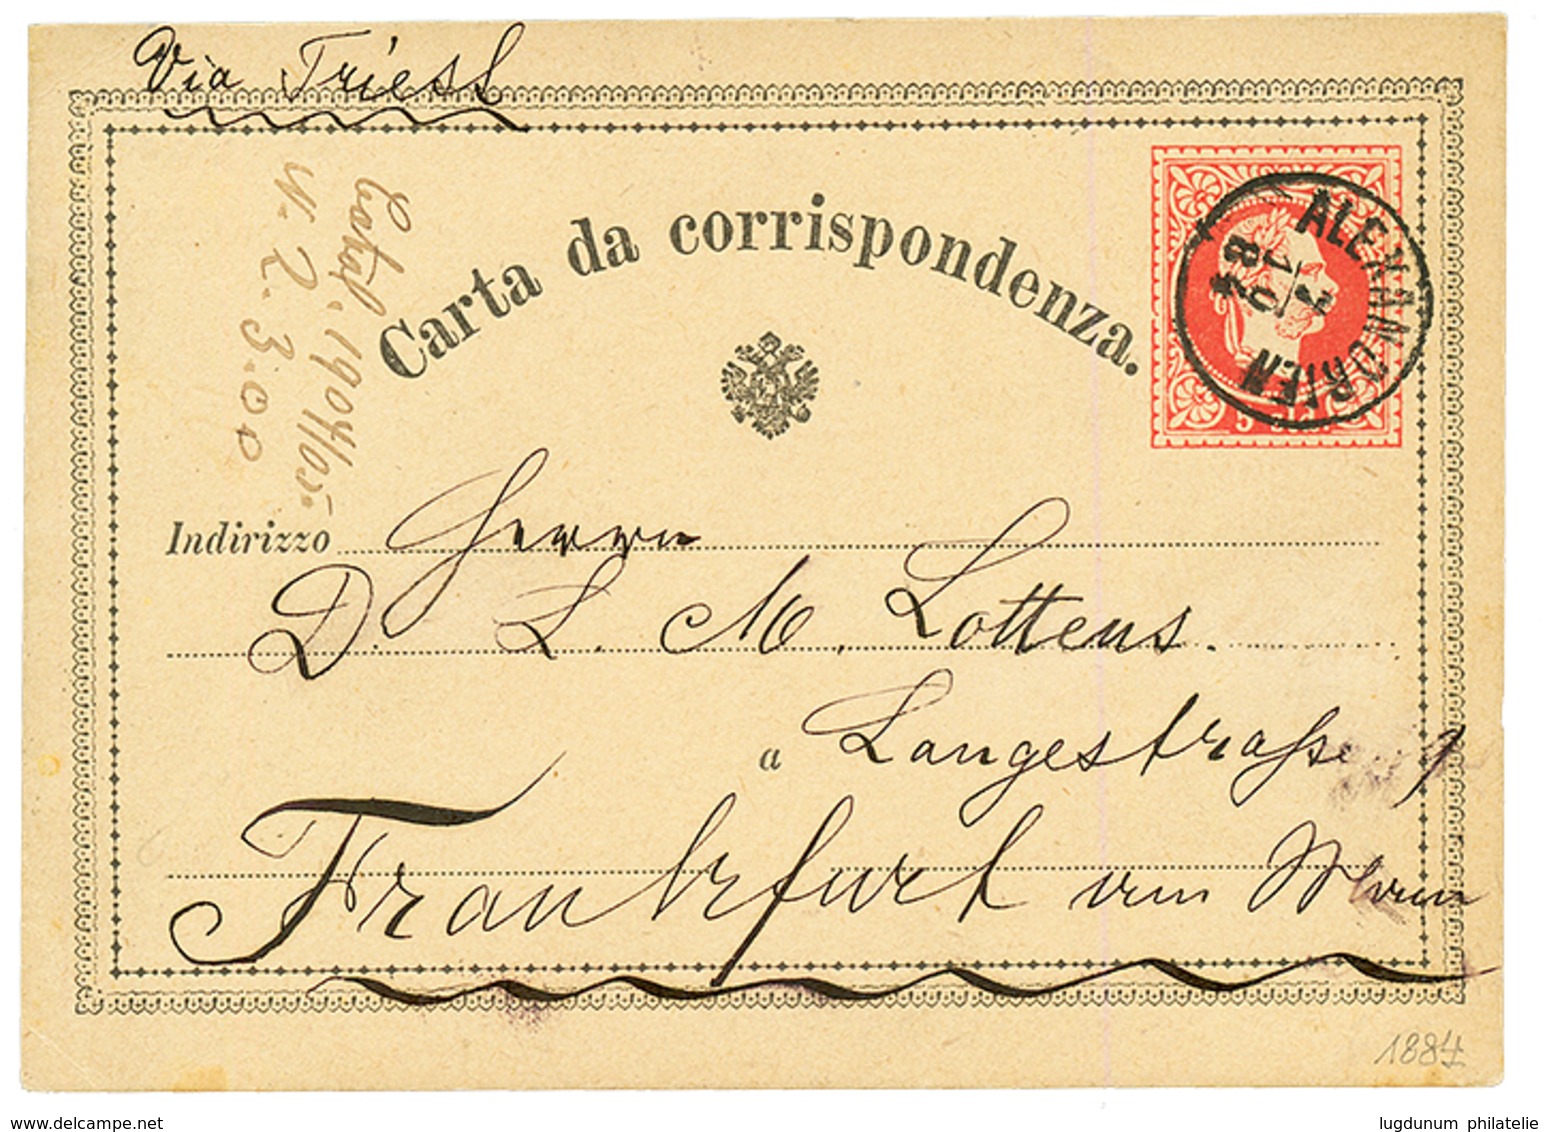 Via Triest
Carta da corrispondenza.
ALEXANDRIEN
10
7
84
5 sld.
Catal. 1904/05
N. 2. 3.00
Indirizzo Herrn
D. L. M. Lottens.
a Langestraße
Frankfurt am Main
1884
www.delcampe.net
lugdunum philatelie